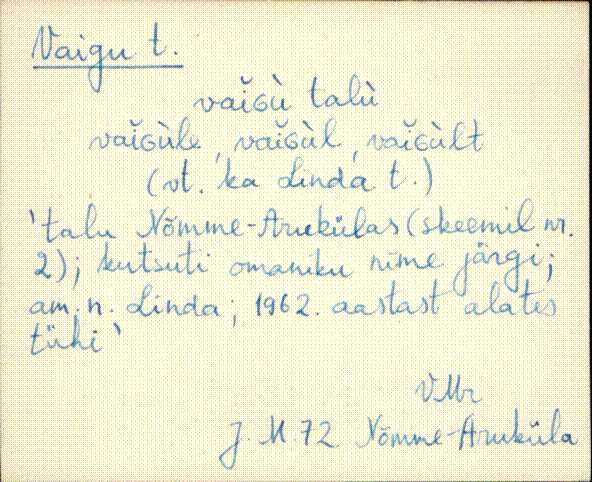 Vaigu t.
vaiɢù talù
vaiɢùle, vaiɢùl, vaiɢùlt
(vt. ka Linda t.)
'talu Nõmme-Arukülas (skeemil nr.
2); kutsuti omaniku nime järgi;
am. n. Linda; 1962. aastast alates
tühi'
VMr
J. M. 72 Nõmme-Aruküla